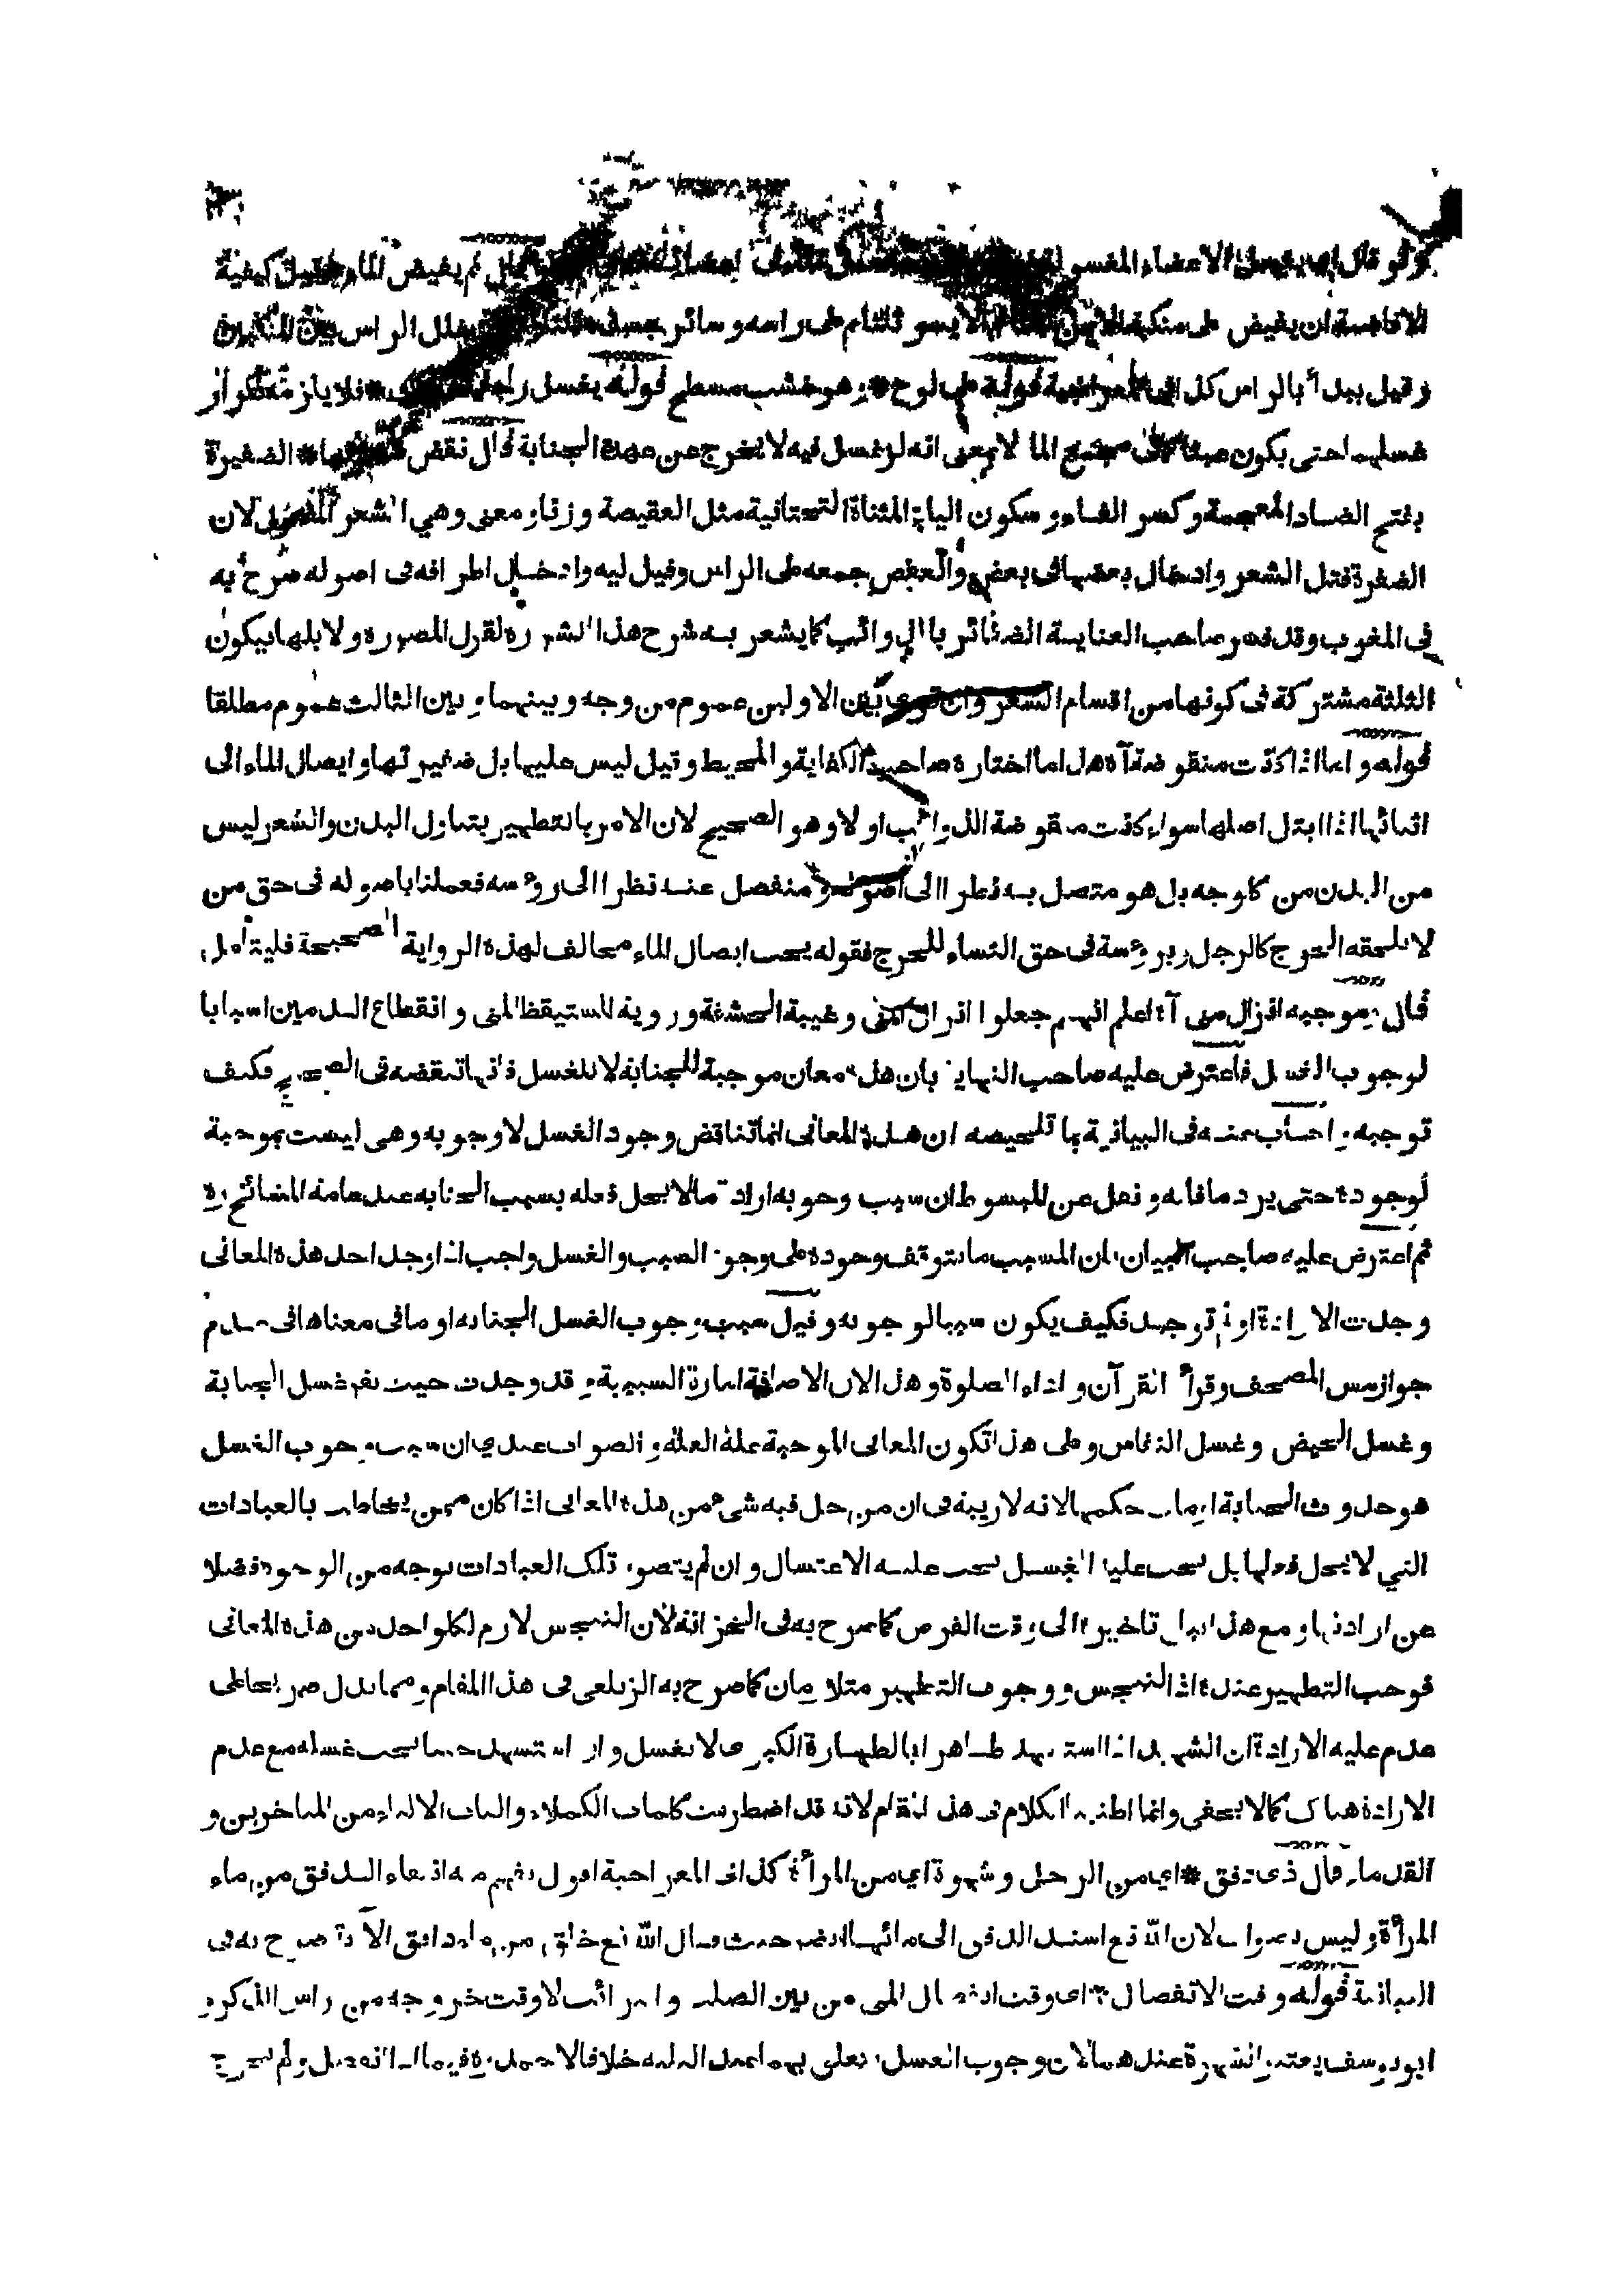 ولو قال الاعضاء المغسولة ثم يفيض الماء كيفية
الافاضة ان يفيض على منكبه الايمن الايسر ثلثا ثم على راسه وسائر جسده الراس بين المنكبين
وقيل يبدأ بالراس كذا فى المعراجية قوله على لوح * هو خشب مسطح قوله يغسل فلا يلزمه تكرار
غسلهما حتى يكون مجتمع الما لا بمعنى انه لو غسل فيه لا يخرج عن عهدة الجنابة قال نقض الضفيرة
بفتح الضاد المعجمة وكسر الفاء وسكون الياء المثناة التحتانية مثل العقيصة وزنا ومعنى وهي الشعر المفتول لان
الضفرة فتل الشعر وادخال بعضها فى بعض والعقص جمعه على الراس وقيل ليه وادخال اطرافه فى اصوله صرح به
فى المغرب وقد فسر صاحب العناية الضفائر بالذوائب كما يشعر به شرح هذا لقول المص ولا بلها بيكون
الثلثة مشتركة فى كونها من اقسام الشعر وان بين الاولين عموم من وجه وبينهما وبين الثالث عموم مطلقا
قوله واما اذا كانت منقوضة آه هذا ما اختاره صاحب الكفاية والمحيط وقيل ليس عليها بل ضفيرتها وايصال الماء الى
اثنائها اذا ابتل اصلها سواء كانت منقوضة الذوائب او لا وهو الصحيح لان الامر بالتطهير يتناول البدن والشعر ليس
من البدن من كل وجه بل هو متصل به نظرا الى اصوله ومنفصل عنه نظرا الى رؤسه فعملنا باصوله فى حق من
لا يلحقه الحرج كالرجل وبرؤسه فى حق النساء للحرج فقوله يجب ايصال الماء مخالف لهذه الرواية الصحيحة فليتأمل
قال وموجبه انزال منى آه اعلم انهم جعلوا انزال المنى وغيبة الحشفة وروية المستيقظ المنى وانقطاع الدمين اسبابا
لوجوب الغسل فاعترض عليه صاحب النهاية بان هذه معان موجبة للجنابة لا للغسل فانها تنقضه فى الصحيح فكيف
توجبه واجاب عنه فى البيانية بما تلخيصه ان هذه المعانى انما تناقض وجود الغسل لا وجوبه وهى ليست بموجبة
لوجوده حتى يرد ما قاله ونقل عن المبسوط ان سبب وجوبه ارادة ما لا يحل فعله بسبب الجنابة عند عامة المشائخ ره
ثم اعترض عليه صاحب البيان بان المسبب ما يتوقف وجوده على وجود السبب والغسل واجب اذا وجد احد هذه المعانى
وجدت الارادة او لم توجد فكيف يكون سببا لوجوبه وقيل سبب وجوب الغسل الجنابة او ما فى معناها فى عدم
جواز مس المصحف وقرأة القرآن واداء الصلوة وهذا لان الاضافة امارة السببية وقد وجدت حيث يقال غسل الجنابة
وغسل الحيض وغسل النفاس وعلى هذا تكون المعانى الموجبة علة العلة والصواب عندي ان سبب وجوب الغسل
هو حدوث الجنابة او ما فى حكمها لانه لا ريبة فى ان من حل فيه شئ من هذه المعانى اذا كان ممن يخاطب بالعبادات
التي لا يحل فعلها بل يجب عليه الغسل يجب عليه الاغتسال وان لم يتصور تلك العبادات بوجه من الوجوه فضلا
عن ارادتها ومع هذا يباح تاخيره الى وقت الفرض كما صرح به فى الخزانة لان التنجس لازم لكل واحد من هذه المعانى
فوجب التطهير عنده اذ التنجس ووجوب التطهير متلازمان كما صرح به الزيلعى فى هذا المقام ومما يدل صريحا على
عدم علية الارادة ان الشهيد اذا استشهد طاهرا بالطهارة الكبرى لا يغسل وان استشهد جنبا يجب غسله مع عدم
الارادة هناك كما لا يخفى وانما اطنبنا الكلام فى هذا المقام لانه قد اضطربت كلمات الكملاء والباب الالباء من المتاخرين و
القدماء قال ذى دفق * اي من الرجل وشهوة اي من المرأة كذا فى المعراجية اقول يفهم منه انتفاء الدفق من ماء
المرأة وليس بصواب لان الله تع اسند الدفق الى مائها ايضا حيث قال الله تع خلق من ماء دافق الآية صرح به فى
البيانية قوله وقت الانفصال * اى وقت انفصال المنى من بين الصلب والترائب لا وقت خروجه من راس الذكر و
ابو يوسف يعتبر الشهوة عندهما لان وجوب الغسل يتعلق بهما عند ابى يوسف خلافا لا